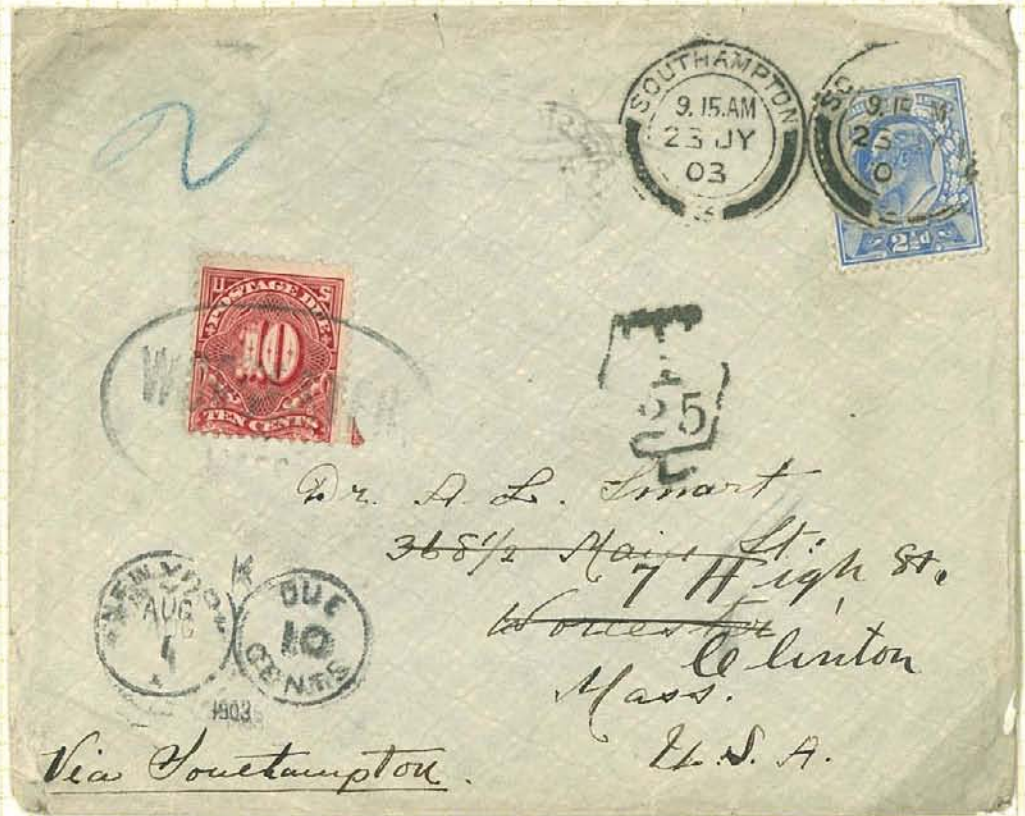 2
SOUTHAMPTON
9.15.AM
23 JY
03
9.15 M
2½d
U S
POSTAGE DUE
10
TEN CENTS
T
25
L
Dr. A. L. Smart
368 1/2 Main St.
7 High St.
Worcester
Clinton
Mass.
U.S.A.
NEW YORK
AUG
1
1903
DUE
10
CENTS
Via Southampton.